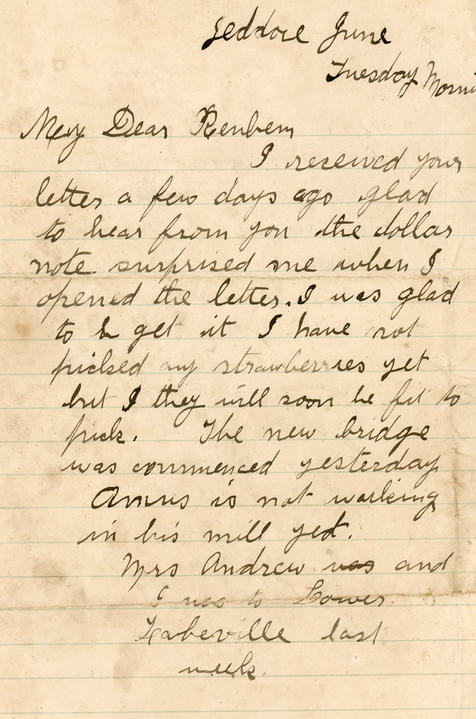 Jeddore June
Tuesday Morni
My Dear Reubem
I received your
letter a few days ago glad
to hear from you the dollar
note surprised me when I
opened the letter. I was glad
to get it I have not
picked any strawberries yet
but I they will soon be fit to
pick. The new bridge
was commenced yesterday
Amus is not working
in his mill yet.
Mrs Andrew was and
I was to Lower
last
week.